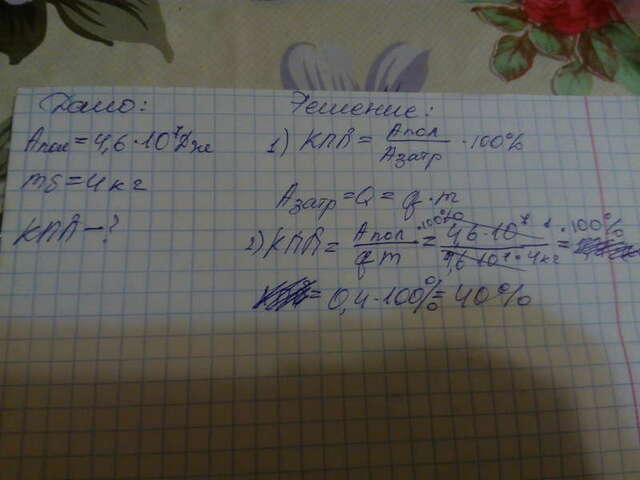 Дано:
Aпол = 4,6 · 10⁷ Дж
mб = 4 кг
КПД – ?
Решение:
1) КПД = Aпол / Aзатр · 100%
Aзатр = Q = q · m
2) КПД = Aпол / qm · 100% = 4,6 · 10⁷ / 4,6 · 10⁷ · 4 кг = · 100%
= 0,4 · 100% = 40%